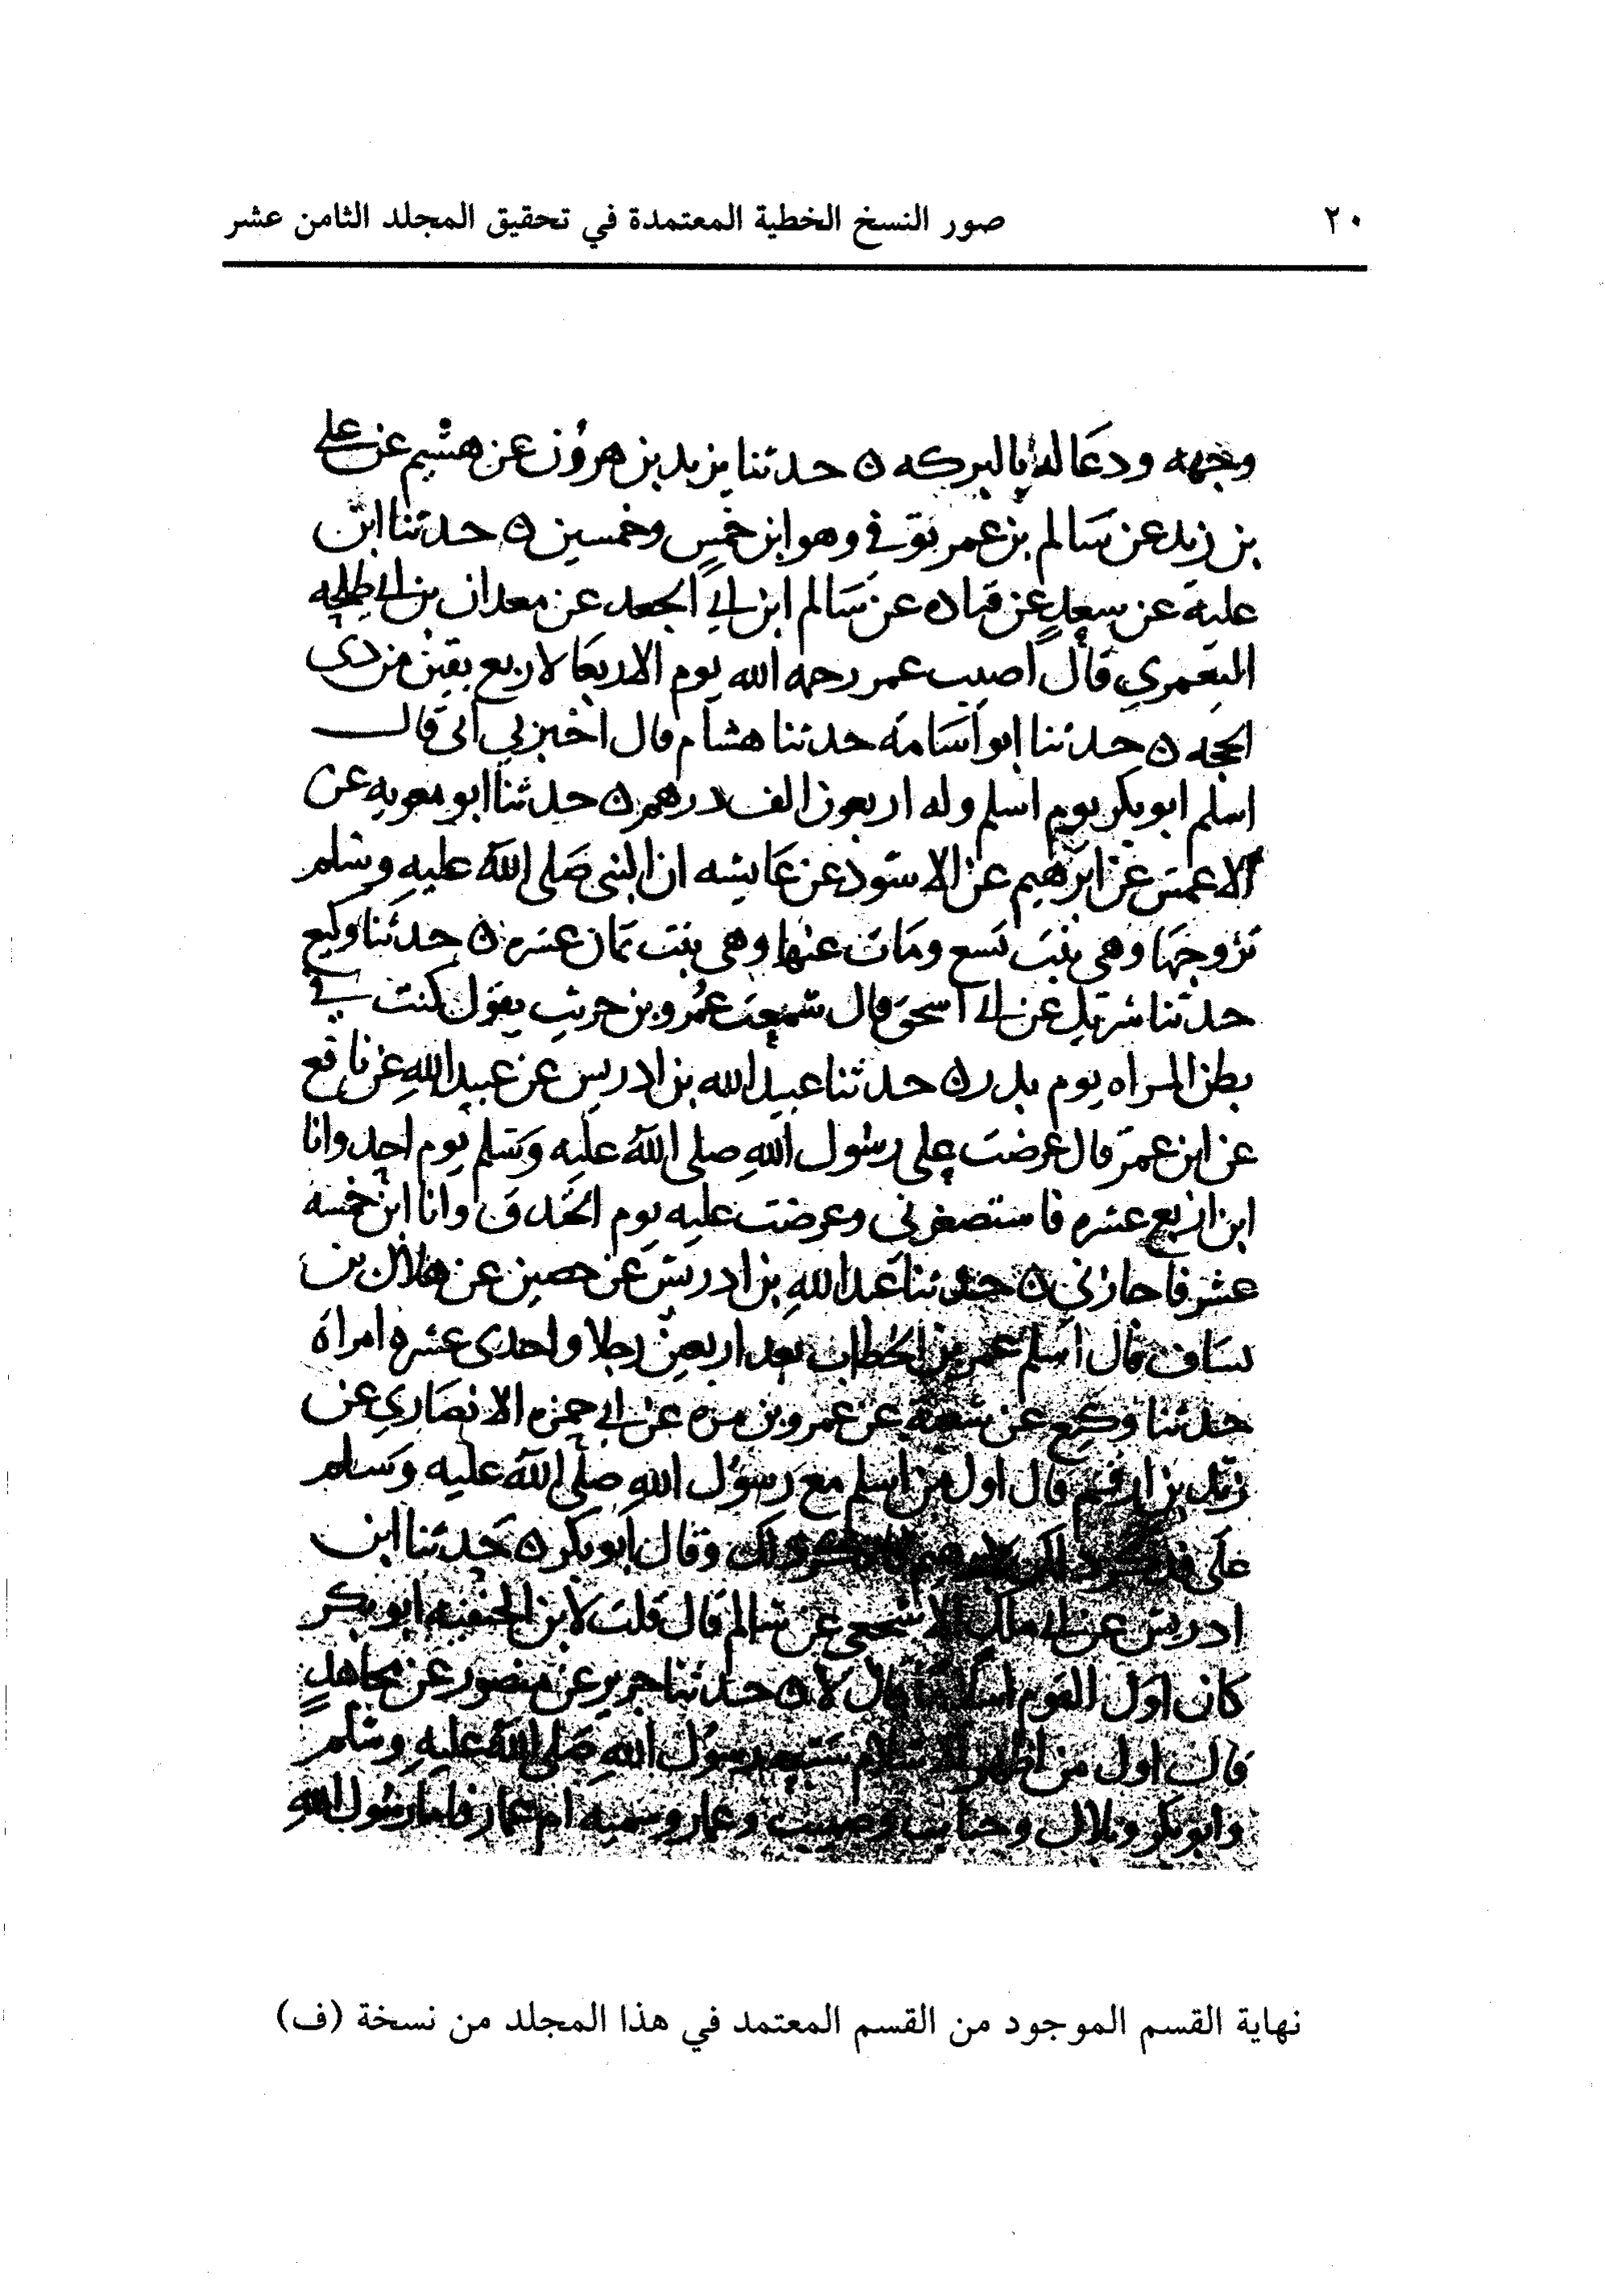 ٢٠
صور النسخ الخطية المعتمدة في تحقيق المجلد الثامن عشر
وجهه ودعا له بالبركه ه حدثنا يزيد بن هرون عن هشيم عن علي
بن زيد عن سالم بن عمر توفي وهو ابن خمس وخمسين ه حدثنا ابن
علية عن سعيد عن قتاده عن سالم ابن ابي الجعد عن معدان بن ابي طلحه
اليعمري قال اصيب عمر رحمه الله يوم الاربعا لاربع بقين من ذي
الحجه ه حدثنا ابو اسامه حدثنا هشام قال اخبرني ابي قال
اسلم ابو بكر يوم اسلم وله اربعون الف درهم ه حدثنا ابو معويه عن
الاعمش عن ابرهيم عن الاسود عن عايشه ان النبي صلى الله عليه وسلم
تزوجها وهي بنت تسع ومات عنها وهي بنت ثمان عشره ه حدثنا وكيع
حدثنا شريك عن ابي اسحق قال سمعت عمرو بن حريث يقول كنت في
بطن المراه يوم بدر ه حدثنا عبد الله بن ادريس عن عبيد الله عن نافع
عن ابن عمر قال عرضت على رسول الله صلى الله عليه وسلم يوم احد وانا
ابن اربع عشره فاستصغرني وعرضت عليه يوم الخندق وانا ابن خمسه
عشر فاجازني ه حدثنا عبد الله بن ادريس عن حصين عن هلال بن
يساف قال اسلم عمر بن الخطاب بعد اربعين رجلا واحدى عشره امراة
حدثنا وكيع عن شعبة عن عمرو بن مره عن ابي حمزه الانصاري عن
زيد بن ارقم قال اول من اسلم مع رسول الله صلى الله عليه وسلم
علي فذكرت ذلك لابرهيم فانكر ذلك وقال ابو بكر ه حدثنا ابن
ادريس عن ابي ملك الاشجعي عن سالم قال قلت لابن الحنفيه ابو بكر
كان اول القوم اسلاما قال لا ه حدثنا جرير عن منصور عن مجاهد
قال اول من اظهر الاسلام سبعه رسول الله صلى الله عليه وسلم
وابو بكر وبلال وخباب وصهيب وعمار وسميه ام عمار فاما رسول الله
نهاية القسم الموجود من القسم المعتمد في هذا المجلد من نسخة (ف)